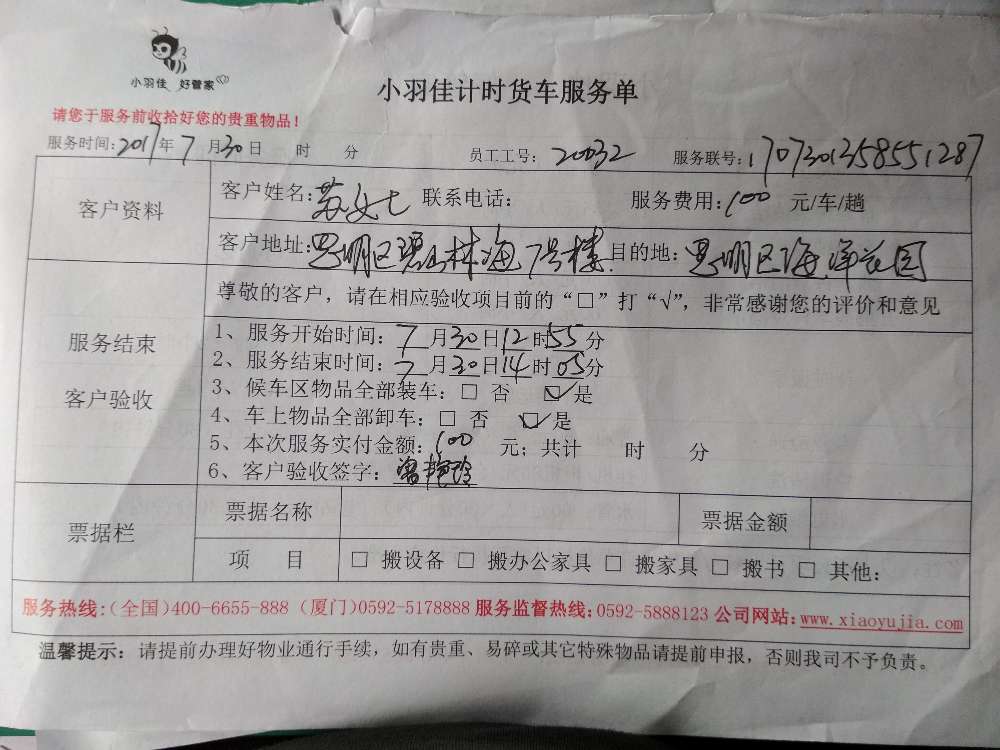 小羽佳 好管家
小羽佳计时货车服务单
请您于服务前收拾好您的贵重物品！
服务时间：2017年7月30日 时 分 员工工号：20032 服务联号：1707301358551287
客户资料
客户姓名：苏女士 联系电话： 服务费用：100 元/车/趟
客户地址：思明区碧山林海7号楼 目的地：思明区海洋花园
服务结束
客户验收
尊敬的客户，请在相应验收项目前的“□”打“√”，非常感谢您的评价和意见
1、服务开始时间：7月30日12时55分
2、服务结束时间：7月30日14时05分
3、候车区物品全部装车：□ 否 ☑是
4、车上物品全部卸车：□ 否 ☑是
5、本次服务实付金额：100 元；共计 时 分
6、客户验收签字：
票据栏
票据名称 票据金额
项 目 □ 搬设备 □ 搬办公家具 □ 搬家具 □ 搬书 □ 其他：
服务热线：（全国）400-6655-888（厦门）0592-5178888 服务监督热线：0592-5888123 公司网站：www.xiaoyujia.com
温馨提示：请提前办理好物业通行手续，如有贵重、易碎或其它特殊物品请提前申报，否则我司不予负责。